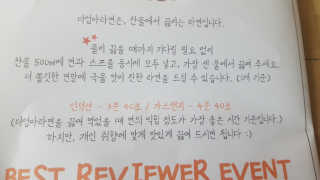 더맘마라면은, 찬물에서 끓이는 라면입니다.
물이 끓을 때까지 기다릴 필요 없이
찬물 500ml에 면과 스프를 동시에 모두 넣고, 가장 센 불에서 끓여 주세요.
더 쫄깃한 면발에 국물 맛이 진한 라면을 드실 수 있습니다. (1개 기준)
인덕션 - 3분 40초 / 가스렌지 - 4분 40초
라면을 끓여 먹었을 때 면의 익힘 정도가 가장 좋은 시간 기준입니다.)
하지만, 개인 취향에 맞게 맛있게 끓여 드시면 됩니다 :)
BEST REVIEWER EVENT